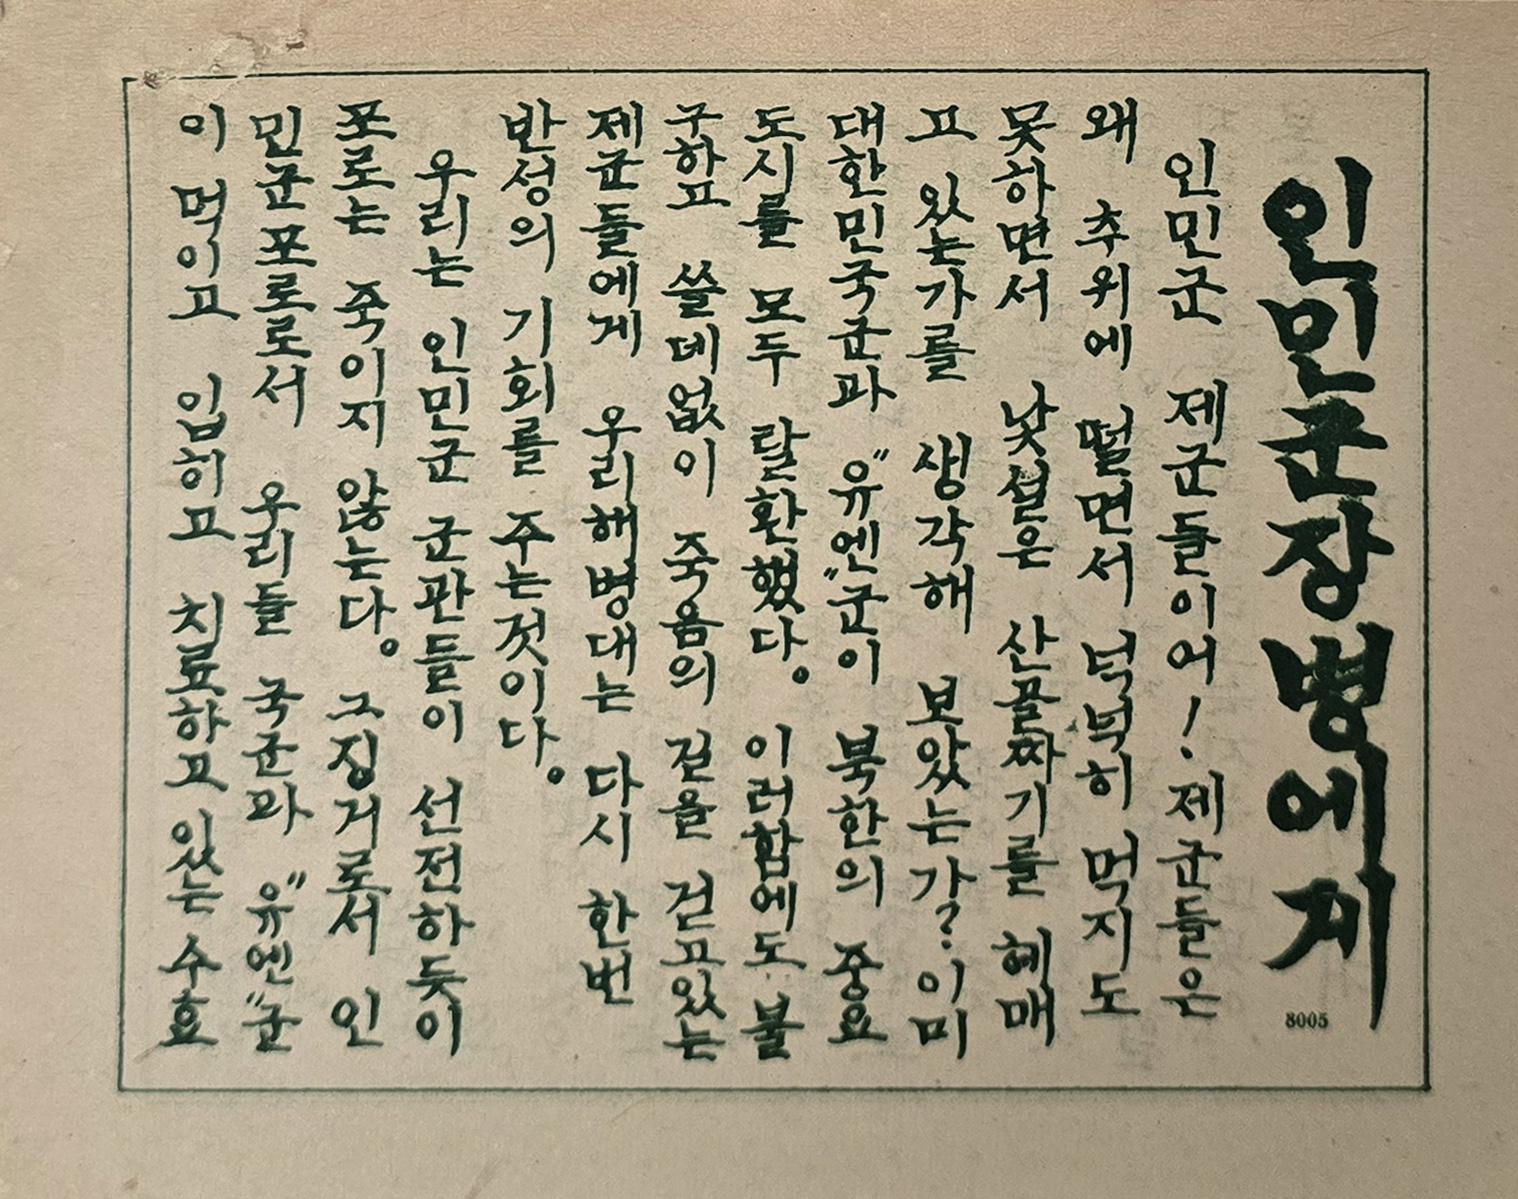 인민군장병에게
8005
인민군 제군들이어! 제군들은
왜 추위에 떨면서 넉넉히 먹지도
못하면서 낯설은 산골짜기를 헤매
고 있는가를 생각해 보았는가? 이미
대한민국군과 "유엔"군이 북한의 중요
도시를 모두 탈환했다。 이러함에도 불
구하고 쓸데없이 죽음의 길을 걷고있는
제군들에게 우리해병대는 다시 한번
반성의 기회를 주는것이다。
우리는 인민군 군관들이 선전하듯이
포로는 죽이지 않는다。 그징거로서 인
민군포로로서 우리들 국군과 "유엔"군
이 먹이고 입히고 치료하고 있는 수효